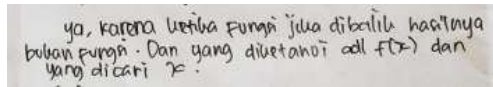 ya, karena ketika fungsi jika dibalik hasilnya
bukan fungsi. Dan yang diketahui adl f(x) dan
yang dicari x.